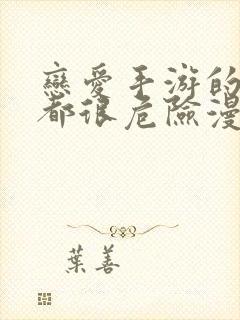 戀愛手游的
都很危險漫
葉善